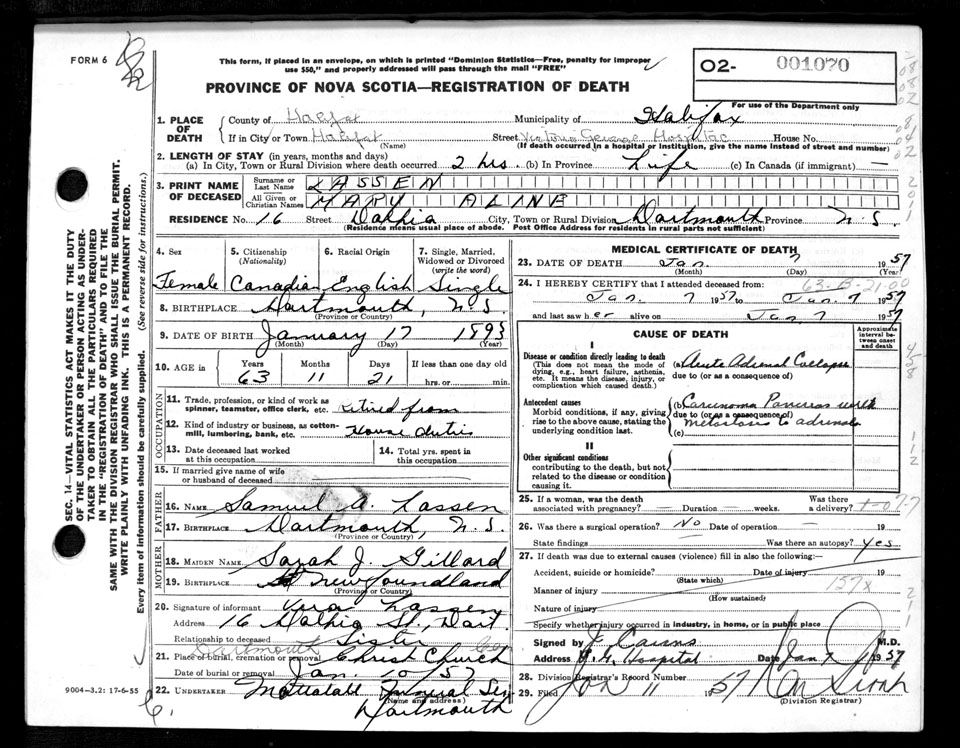 FORM 6
This form, if placed in an envelope, on which is printed "Dominion Statistics—Free, penalty for improper
use $50," and properly addressed will pass through the mail "FREE"
PROVINCE OF NOVA SCOTIA—REGISTRATION OF DEATH
O2- 001070
For use of the Department only
1. PLACE OF DEATH
County of Halifax Municipality of Halifax
If in City or Town Halifax (Name) Street Victoria General Hospital House No.
(If death occurred in a hospital or institution, give the name instead of street and number)
2. LENGTH OF STAY (in years, months and days)
(a) In City, Town or Rural Division where death occurred 2 hrs. (b) In Province Life (c) In Canada (if immigrant) —
3. PRINT NAME OF DECEASED
Surname or Last Name LASSEN
All Given or Christian Names MARY ALINE
RESIDENCE No. 16 Street Dahlia City, Town or Rural Division Dartmouth Province N.S.
(Residence means usual place of abode. Post Office Address for residents in rural parts not sufficient)
4. Sex Female
5. Citizenship (Nationality) Canadian
6. Racial Origin English
7. Single, Married, Widowed or Divorced (write the word) Single
8. BIRTHPLACE Dartmouth, N.S.
(Province or Country)
9. DATE OF BIRTH January 17 1893
(Month) (Day) (Year)
10. AGE in Years 63 Months 11 Days 21 If less than one day hrs. or min.
OCCUPATION
11. Trade, profession, or kind of work as spinner, teamster, office clerk, etc. retired from
12. Kind of industry or business, as cotton-mill, lumbering, bank, etc. House duties
13. Date deceased last worked at this occupation
14. Total yrs. spent in this occupation
15. If married give name of wife or husband of deceased
FATHER
16. NAME Samuel A. Lassen
17. BIRTHPLACE Dartmouth, N.S.
(Province or Country)
MOTHER
18. MAIDEN NAME Sarah J. Gillard
19. BIRTHPLACE Newfoundland
(Province or Country)
20. Signature of informant Vera Lassen
Address 16 Dahlia St., Dart.
Relationship to deceased Sister
Dartmouth
21. Place of burial, cremation or removal Christ Church
Date of burial or removal Jan. 10/57
22. UNDERTAKER Mattatall Funeral Ser.
(Name and address)
Dartmouth
9004—3.2: 17-6-55
MEDICAL CERTIFICATE OF DEATH
23. DATE OF DEATH Jan. 7 1957
(Month) (Day) (Year)
63-B-21-00
24. I HEREBY CERTIFY that I attended deceased from:
Jan. 7 1957 to Jan. 7 1957
and last saw her alive on Jan 7 1957
CAUSE OF DEATH
Approximate interval between onset and death
I
Disease or condition directly leading to death
(This does not mean the mode of dying, e.g., heart failure, asthenia, etc. It means the disease, injury, or complication which caused death.)
(a) Acute Adrenal Collapse
due to (or as a consequence of)
Antecedent causes
Morbid conditions, if any, giving rise to the above cause, stating the underlying condition last.
(b) Carcinoma Pancreas with
due to (or as a consequence of)
Metastasis to adrenals
(c)
II
Other significant conditions
contributing to the death, but not related to the disease or condition causing it.
25. If a woman, was the death associated with pregnancy? — Duration — weeks. Was there a delivery?
26. Was there a surgical operation? No Date of operation — 19
State findings — Was there an autopsy? Yes
27. If death was due to external causes (violence) fill in also the following:—
Accident, suicide or homicide? Date of injury 19
(State which)
Manner of injury 157x
(How sustained)
Nature of injury
Specify whether injury occurred in industry, in home, or in public place
Signed by J. Cairns M.D.
Address V.G. Hospital Date Jan 7 1957
28. Division Registrar's Record Number
29. Filed Jan 11 1957
(Division Registrar)
SEC. 14—VITAL STATISTICS ACT MAKES IT THE DUTY
OF THE UNDERTAKER OR PERSON ACTING AS UNDER-
TAKER TO OBTAIN ALL THE PARTICULARS REQUIRED
IN THE "REGISTRATION OF DEATH" AND TO FILE THE
SAME WITH THE DIVISION REGISTRAR WHO SHALL ISSUE THE BURIAL PERMIT.
WRITE PLAINLY WITH UNFADING INK. THIS IS A PERMANENT RECORD.
Every item of information should be carefully supplied. (See reverse side for instructions.)